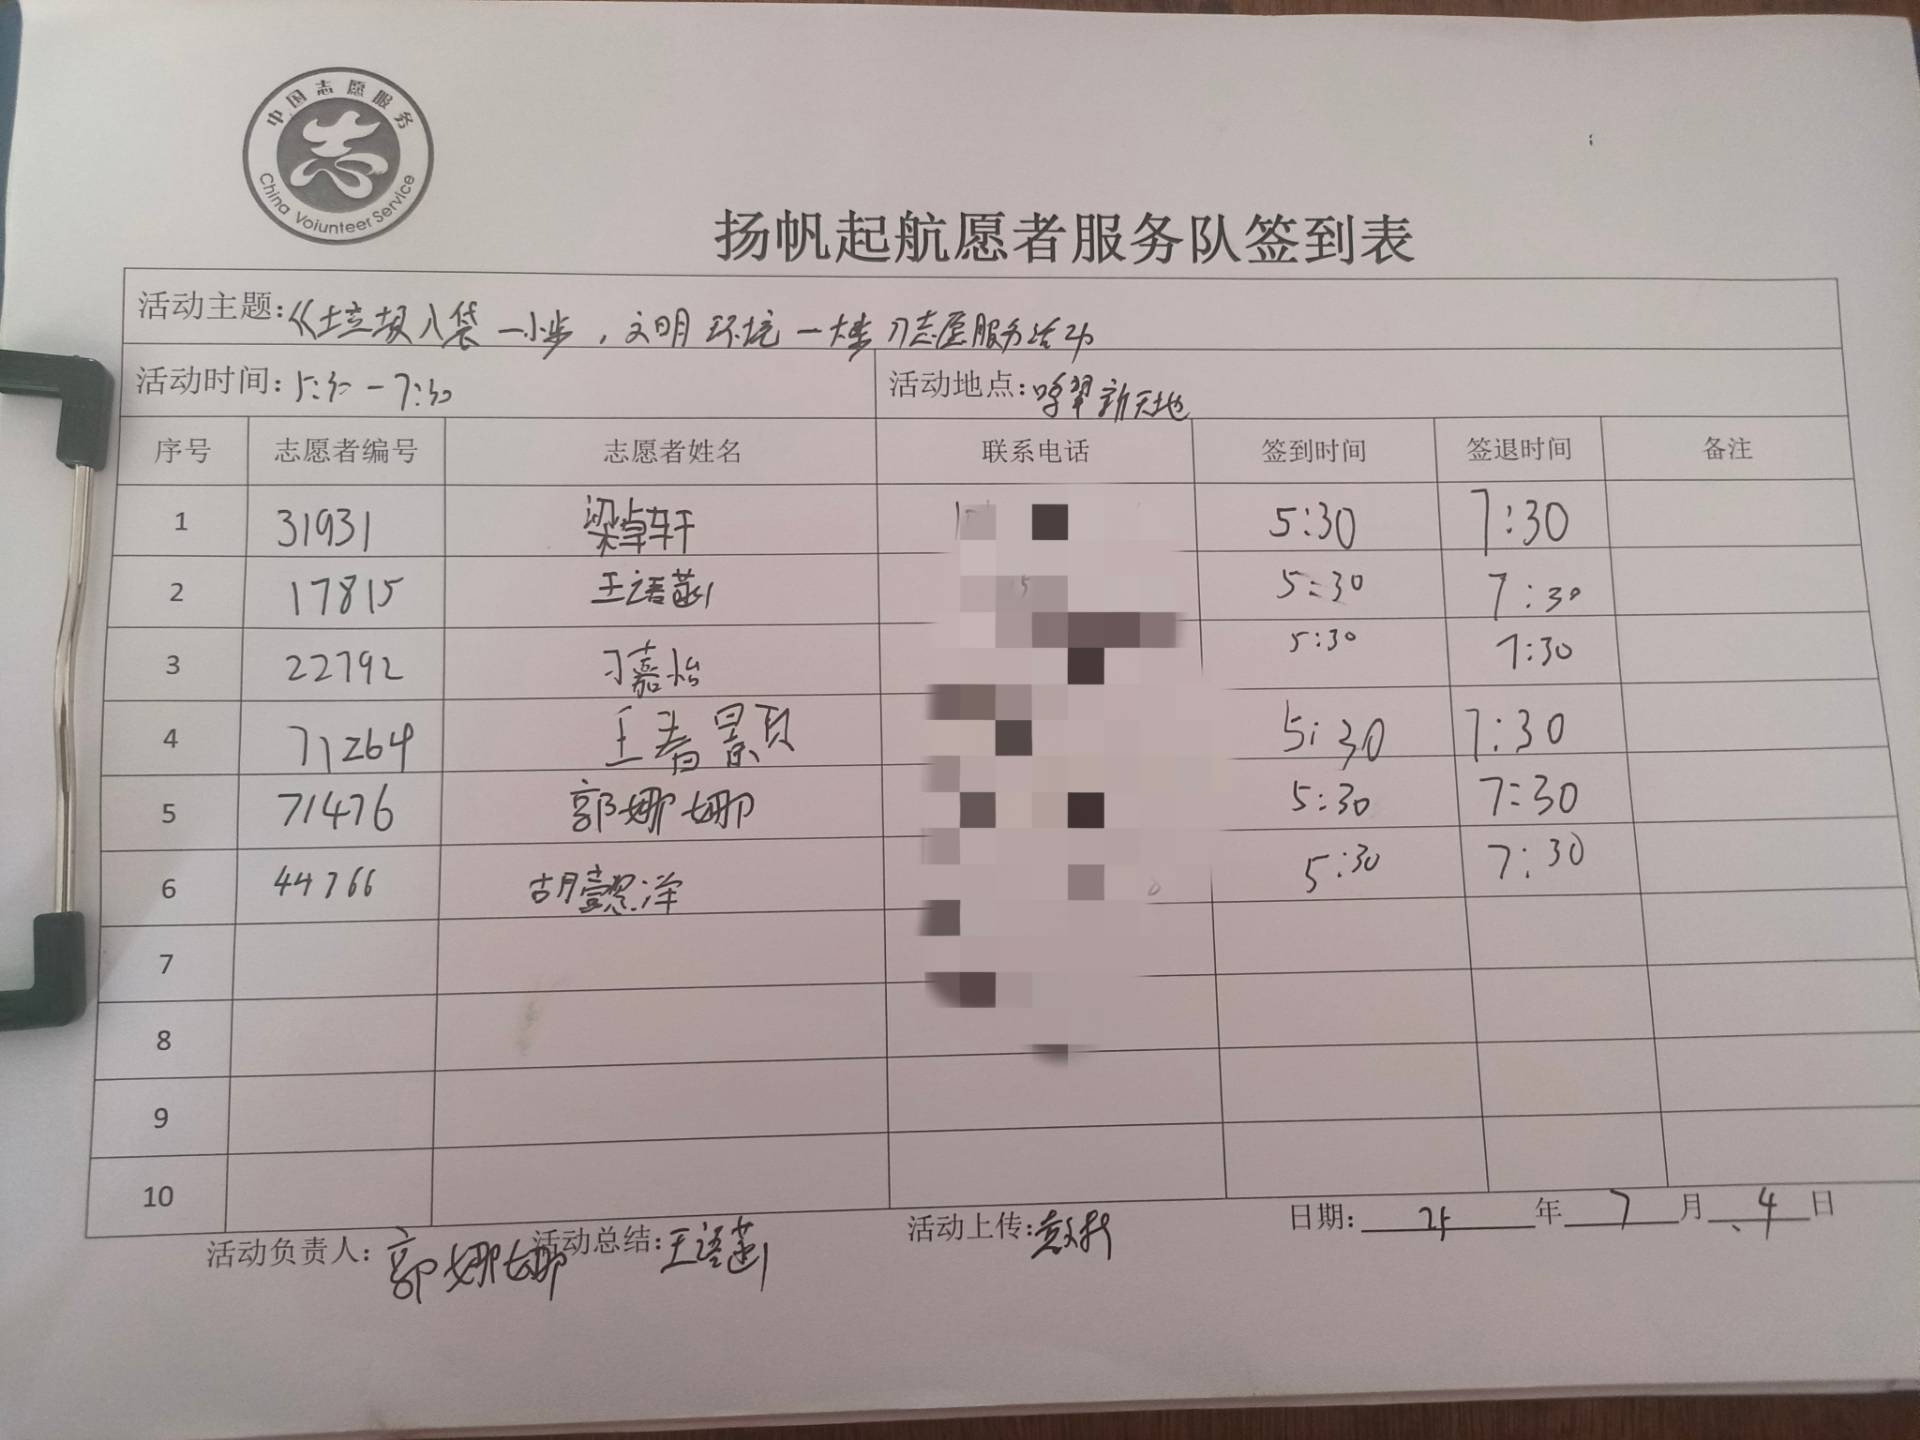 中国志愿服务
China Voiunteer Service
扬帆起航愿者服务队签到表
活动主题:《垃圾入袋一小步，文明环境一大步》志愿服务活动
活动时间:5:30-7:30 活动地点:鸣翠新天地
序号 志愿者编号 志愿者姓名 联系电话 签到时间 签退时间 备注
1 31931 梁卓轩 5:30 7:30
2 17815 王语菡 5:30 7:30
3 22792 刁嘉怡 5:30 7:30
4 71264 王春景页 5:30 7:30
5 71476 郭娜娜 5:30 7:30
6 44766 胡懿洋 5:30 7:30
7
8
9
10
活动负责人:郭娜娜 活动总结:王语菡 活动上传: 日期: 24 年 7 月 4 日